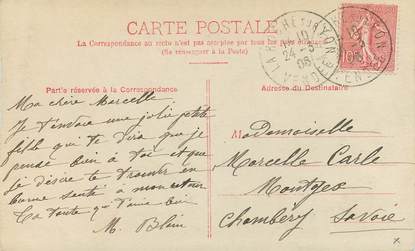 CARTE POSTALE
La Correspondance au recto n'est pas acceptée par tous les pays étrangers
(Se renseigner à la Poste)
Partie réservée à la Correspondance
Adresse du Destinataire
LA ROCHE-S-YON
24
06
VENDÉE
Ma chère Marcelle
Je t'envoie une jolie petite
fille qui te dira que je
pense bien à toi et que
je désire te trouver en
bonne santé à mon retour
Ta tante qui t'aime bien
M. Blanc
Mademoiselle
Marcelle Carle
Montgex
Chambéry Savoie